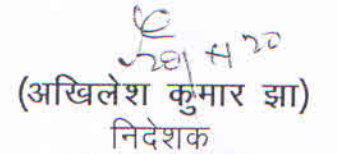 (अखिलेश कुमार झा)
निदेशक